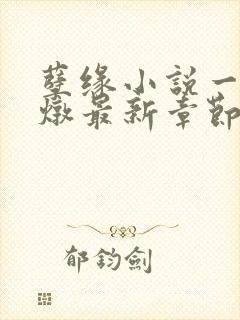 孽缘小說一
燉最新章節
郁鈞劍